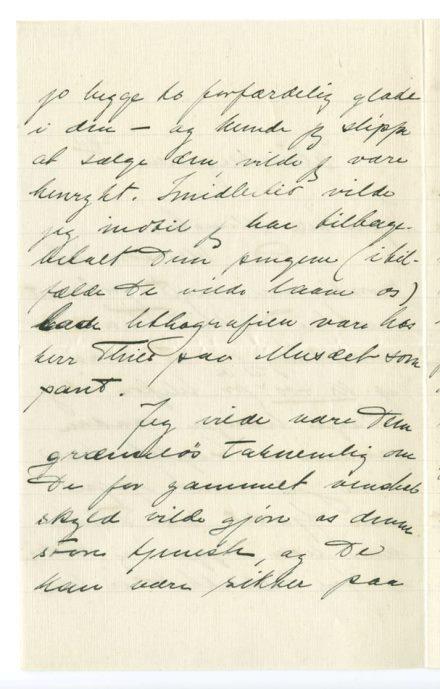 jo begge to forfærdelig glade
i den – og kunde jeg slippe
at sælge den, vilde jeg være
henrykt. Imidlertid vilde
jeg indtil jeg har tilbage-
betalt Dem pengene (i til-
fælde De vilde laane os)
lade lithografien være hos
herr Thiis paa Musæet som
pant.
Jeg vilde være Dem
grændseløs taknemlig om
De for gammelt venskab
skyld vilde gjøre os denne
store tjeneste, og De
kan være sikker paa